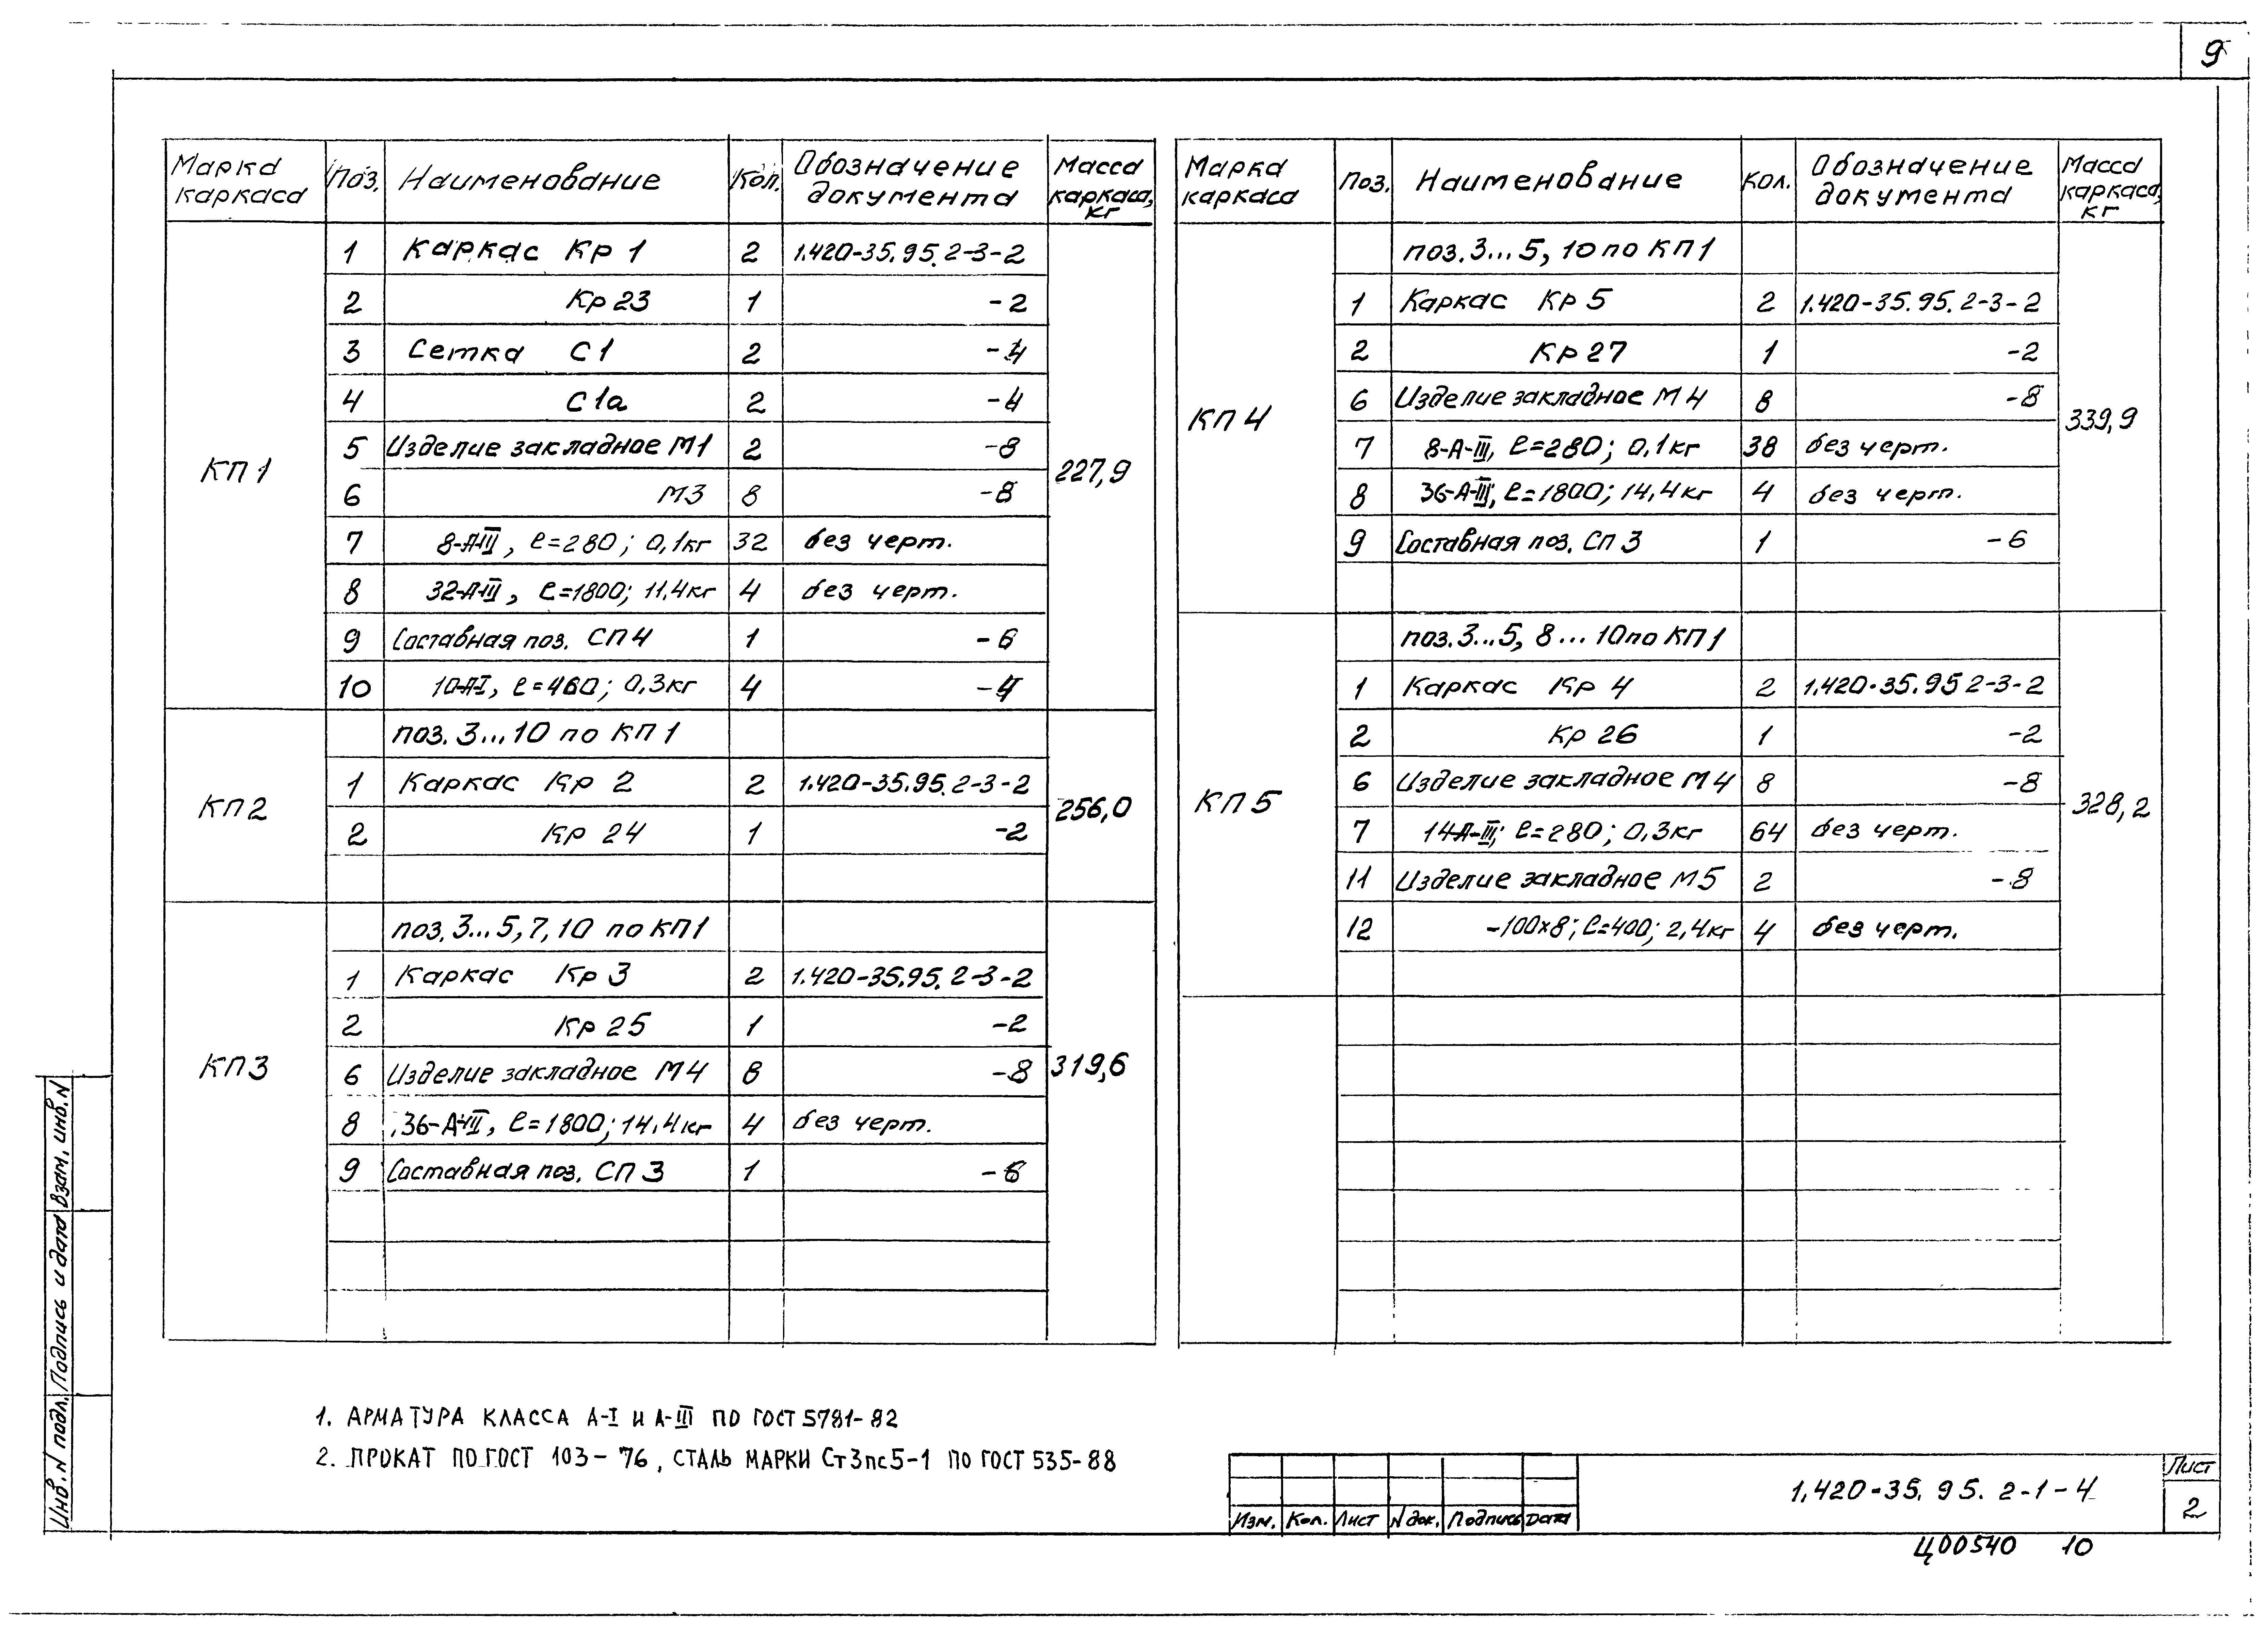 9
Марка каркаса Поз. Наименование Кол. Обозначение документа Масса каркаса, кг
КП1 227,9
1 Каркас Кр 1 2 1.420-35.95.2-3-2
2 Кр 23 1 -2
3 Сетка С1 2 -4
4 С1а 2 -4
5 Изделие закладное М1 2 -8
6 М3 8 -8
7 8-А-III, l=280; 0,1кг 32 без черт.
8 32-А-III, l=1800; 11,4кг 4 без черт.
9 Составная поз. СП4 1 -6
10 10-А-I, l=460; 0,3кг 4 -4
КП2 256,0
поз. 3...10 по КП1
1 Каркас Кр 2 2 1.420-35.95.2-3-2
2 Кр 24 1 -2
КП3 319,6
поз. 3...5, 7, 10 по КП1
1 Каркас Кр 3 2 1.420-35.95.2-3-2
2 Кр 25 1 -2
6 Изделие закладное М4 8 -8
8 36-А-III, l=1800; 14,4кг 4 без черт.
9 Составная поз. СП3 1 -6
Марка каркаса Поз. Наименование Кол. Обозначение документа Масса каркаса, кг
КП4 339,9
поз. 3...5, 10 по КП1
1 Каркас Кр 5 2 1.420-35.95.2-3-2
2 Кр 27 1 -2
6 Изделие закладное М4 8 -8
7 8-А-III, l=280; 0,1кг 38 без черт.
8 36-А-III, l=1800; 14,4кг 4 без черт.
9 Составная поз. СП3 1 -6
КП5 328,2
поз. 3...5, 8...10 по КП1
1 Каркас Кр 4 2 1.420-35.95 2-3-2
2 Кр 26 1 -2
6 Изделие закладное М4 8 -8
7 14-А-III, l=280; 0,3кг 64 без черт.
11 Изделие закладное М5 2 -8
12 -100х8; l=400; 2,4кг 4 без черт.
1. АРМАТУРА КЛАССА А-I И А-III ПО ГОСТ 5781-82
2. ПРОКАТ ПО ГОСТ 103-76, СТАЛЬ МАРКИ Ст3пс5-1 ПО ГОСТ 535-88
Инв. N подл. Подпись и дата Взам. инв. N
Изм. Кол. Лист N док. Подпись Дата
1.420-35.95.2-1-4
Лист
2
Ц00540 10